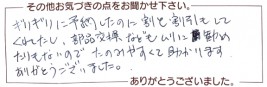 その他お気づきの点をお聞かせ下さい。
ギリギリに予約したのに割と割引もして
くれたし、部品交換などもムリに勧め
たりもないので たのみやすくて助かります
ありがとうございました。
ありがとうございました。